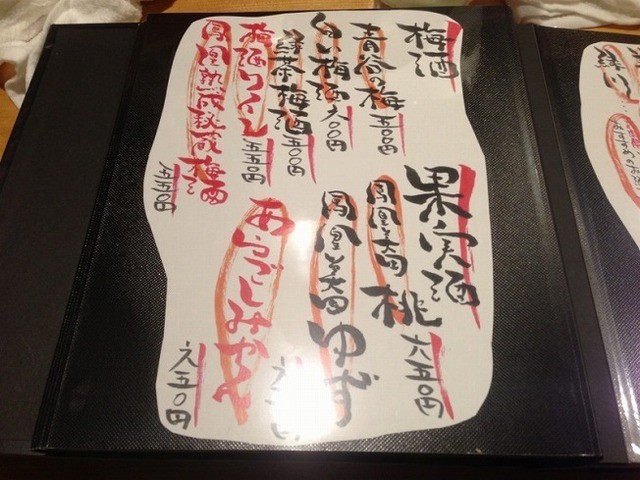 梅酒
青谷の梅 五〇〇円
白い梅酒 六〇〇円
緑茶梅酒 五〇〇円
梅酒ワイン 五五〇円
鳳凰熟成梅酒 五五〇円
果実酒
鳳凰美田 桃 六五〇円
鳳凰美田 ゆず
あらごしみかん 六五〇円